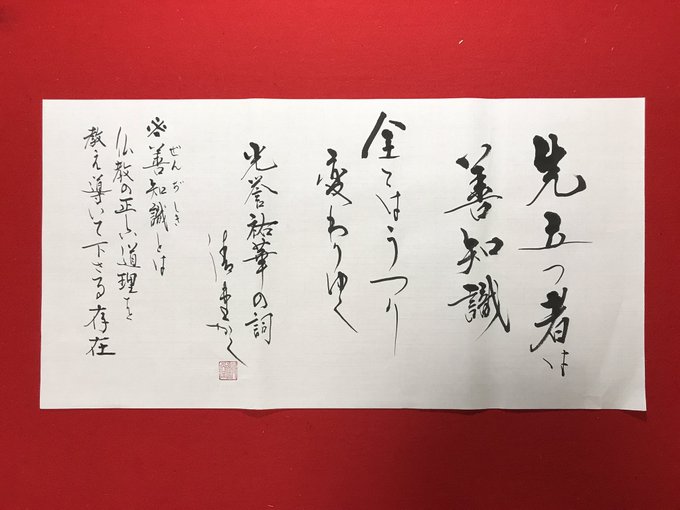 先立つ者は
善知識
全てはうつり
変わりゆく
光誉祐華の詞
かく
ぜんぢしき
※善知識とは
仏教の正しい道理を
教え導いて下さる存在